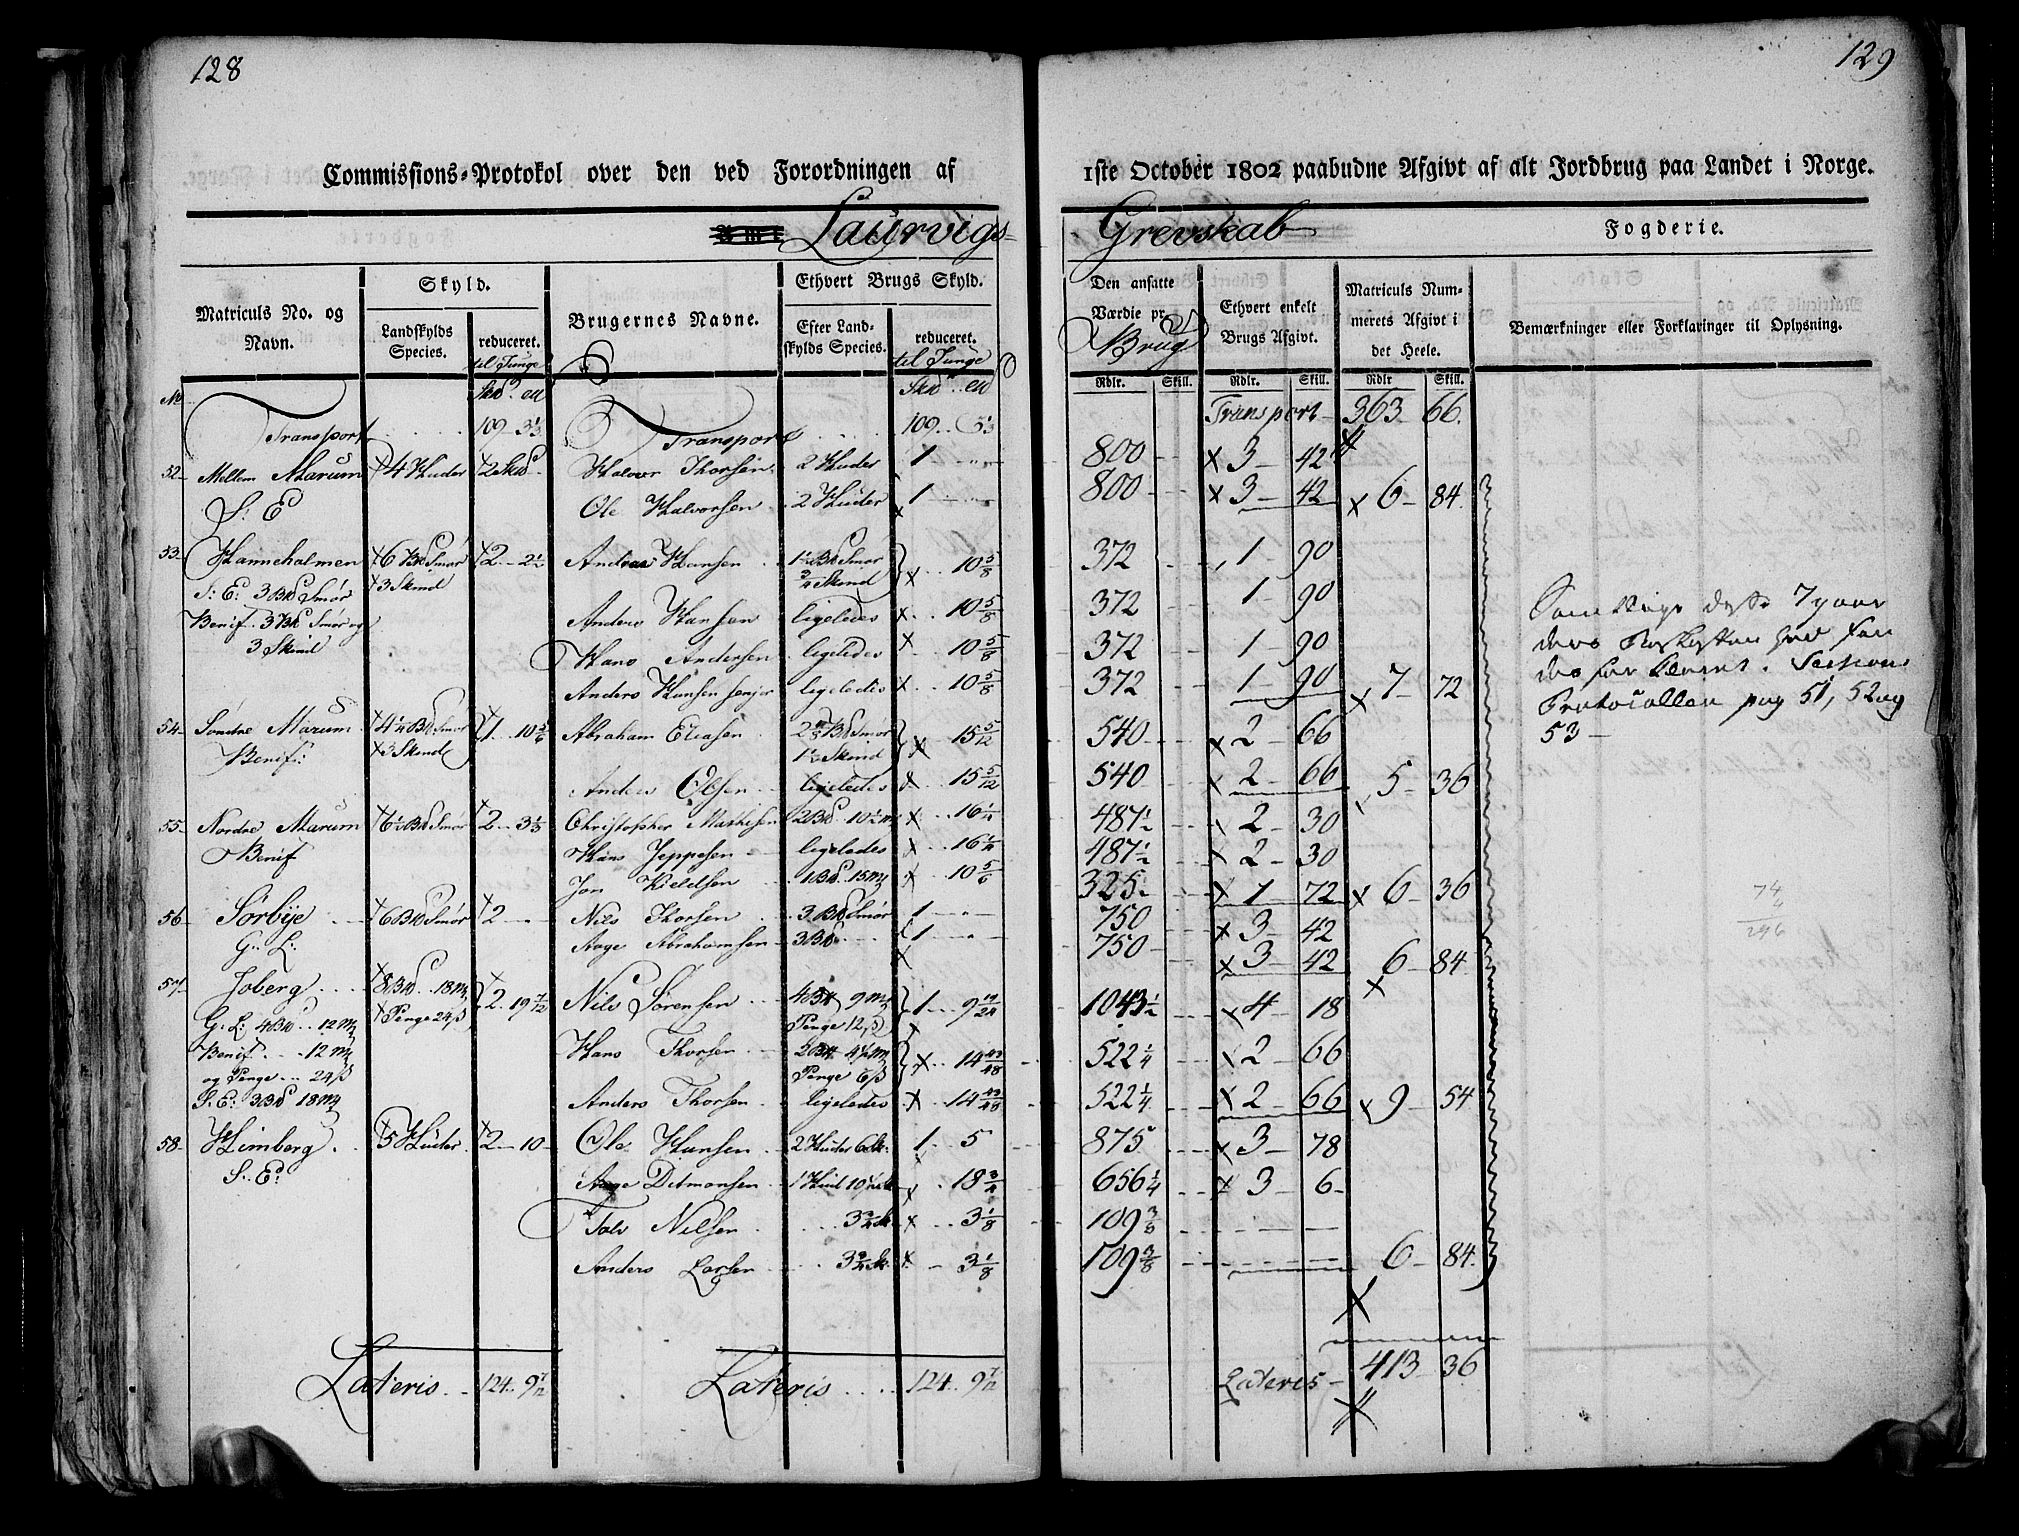 128
129
Commissions-Protokol over den ved Forordningen af
1ste October 1802 paabudne Afgivt af alt Jordbrug paa Landet i Norge.
Amt Laurvigs-
Grevskab Fogderie.
Matriculs No. og Navn.
Skyld.
Landskylds Species.
reduceret. til Tunge
Brugernes Navne.
Ethvert Brugs Skyld.
Efter Landskylds Species.
reduceret. til Tunge
Den ansatte Værdie pr. Brug
Ethvert enkelt Brugs Afgivt.
Matriculs Nummerets Afgivt i det Heele.
Bemærkninger eller Forklaringer til Oplysning.
Rdlr. Skill. Rdlr. Skill. Rdlr Skill.
Transport 109 3 1/3 Transport 109 3 1/3 Transport 363 66.
52 Mellem Marum 4 Huder 2 Skd Halvor Thorsen 2 Huder 1 800 3 42
S: E Ole Halvorsen 2 Huder 1 800 3 42 6 84
53 Hanneholmen 6 Bd Smør 2 2 1/2 Andreas Hansen 1 1/2 Bd Smør 10 5/8 372 1 90
S: E: 3 Bd Smör 3 Skind 3/4 Skind
Benif. 3 Bd Smör og Anders Hansen ligeledes 10 5/8 372 1 90
3 Skind Hans Andersen ligeledes 10 5/8 372 1 90
Anders Hansen senjor ligeledes 10 5/8 372 1 90 7 72
Protocollen pag 51, 52 og
53
54 Søndre Marum 4 1/2 Bd Smør 1 10 5/6 Abraham Eliasen Bd Smør 15 5/12 540 2 66
Benif: 3 Skind 1 1/2 Skind
Anders Olsen ligeledes 15 5/12 540 2 66 5 36
55 Nordre Marum 6 1/2 Bd Smør 2 3 1/3 Christopher Mathisen 2 Bd 10 1/2 16 1/4 487 1/2 2 30
Benif Hans Jeppesen ligeledes 16 1/4 487 1/2 2 30
Jon Kieldsen 1 Bd 15 10 5/6 325 1 72 6 36
56 Sørbÿe 6 Bd Smør 2 Nils Thorsen 3 Bd Smør 1 750 3 42
G: L: Aage Abrahamsen 3 Bd 1 750 3 42 6 84
74
4
296
57 Joberg 8 Bd 18 2 19 7/12 Nils Sørensen 4 Bd 9 1 9 19/24 1043 1/2 4 18
G: L: 4 Bd 12 Penge 24 ß Penge 12 ß
Benif 12 Hans Thorsen 2 Bd 4 1/2 14 43/48 522 1/4 2 66
og Penge 24 ß Penge 6 ß
S. E: 3 Bd 18 Anders Thorsen ligeledes 14 43/48 522 1/4 2 66 9 54
58 Himberg 5 Huder 2 10 Ole Hansen 2 Huder 6 sk 1 5 875 3 78
S: E: Aage Ditmansen 1 Hud 10 1/2 sk 18 3/4 656 1/4 3 6
Tolv Nilsen 3 3/4 sk 3 1/8 109 3/8
Anders Larsen 3 3/4 sk 3 1/8 109 3/8 6 84
Lateris 124 9 7/12 Lateris 124 9 7/12 Lateris 413 36